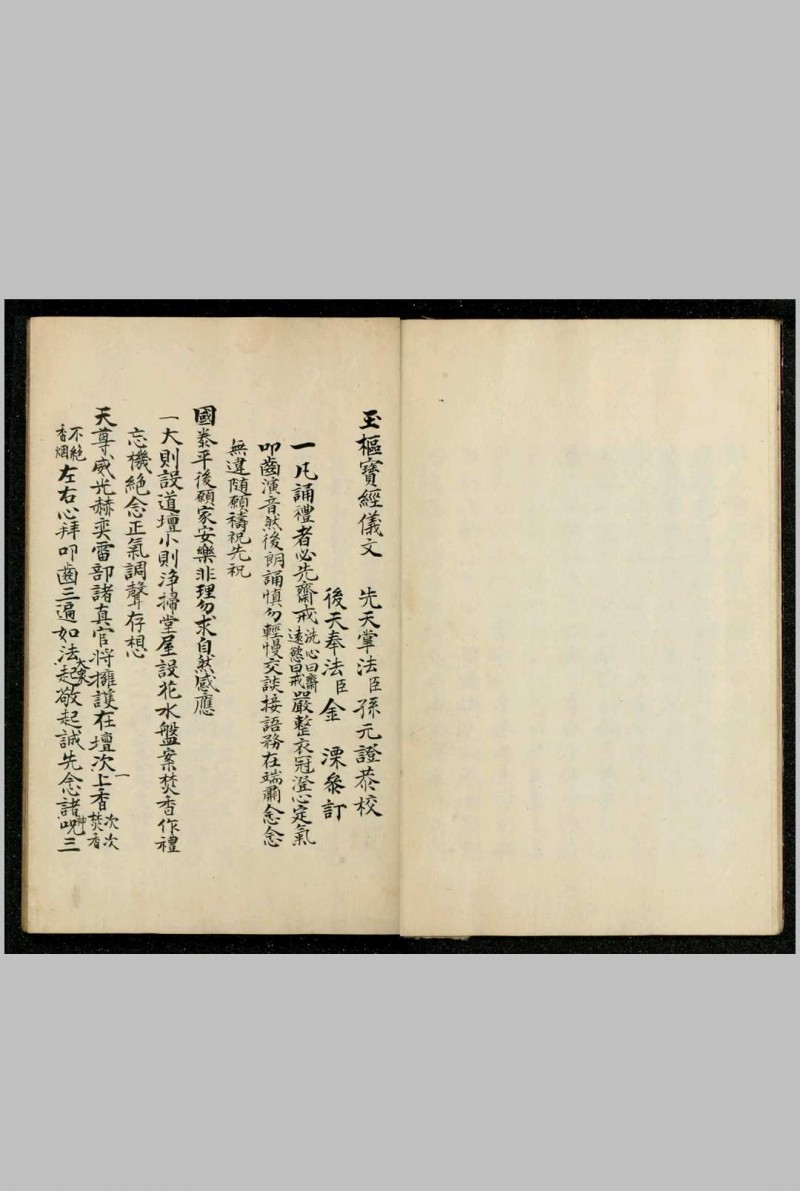 玉樞寶經儀文 先天掌法臣孫元證恭校
後天奉法臣金 溧叅訂
一凡誦禮者必先齋戒洗心曰齋遠慾曰戒嚴整衣冠澄心定氣
叩齒演音然後朗誦慎勿輕慢交談接語務在端肅念念
無違随願禱祝先祝
國泰平後願家安樂非理勿求自然感應
一大則設道壇小則浄掃堂屋設花水盤案焚香作禮
忘機絕念正氣調聲存想
天尊威光赫奕雷部諸真官将擁護在壇次上香次次焚香
不絕香烟左右心拜叩齒三遍如法起敬起誠先念諸神咒三